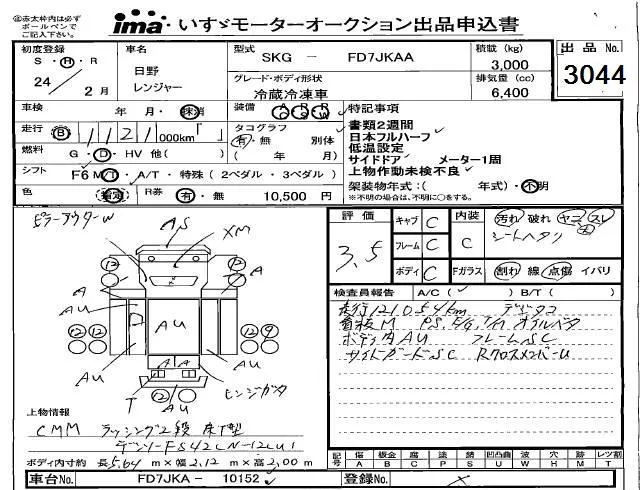 ※赤太枠内は必ず
ボールペンで
ご記入下さい。
ima いすゞモーターオークション出品申込書
初度登録 車名 型式 SKG- FD7JKAA 積載 (kg) 3,000 出品 No.
S・H・R 日野 グレード・ボディ形状 排気量 (cc) 3044
24 2 月 レンジャー 冷蔵冷凍車 6,400
車検 年 月・抹消 装備 特記事項
走行 B 1121 000km タコグラフ 書類2週間
有・無 別体 日本フルハーフ
燃料 G・D・HV 他( ) ( 年 月) 低温設定
シフト F6 M/T・A/T・特殊(2ペダル・3ペダル) サイドドア メーター1周
上物作動未検不良
色 指定 R券 有・無 10,500 円 架装物年式:( 年式)・不明
※不明の場合は、不明に○をする。
ピラーアウターW
評価 3.5
キャブ C 内装 C 汚れ 破れ ヤニ スレ
シートヘタリ
フレーム C
ボディ C Fガラス 割れ 線 点傷 イバリ
AS
XM
12 12
A A
AU AU AU
12 12 12 9
A A
AU AU
T 12 ヒンジガタ
AU
検査員報告 A/C( ) B/T( )
走行121,054km デジタコ
看板M PS, E/G, T/M オイルベタ
ボディ内AU フレームSC
サイドガードSC RクロスメンバーU
上物情報
CMM ラッシング2段 床下型
デンソーFS42CN-12LU1
ボディ内寸約 長5.64 m×幅2.12 m×高2.00 m
記号 傷 A 板金 B 腐 C 塗 P 錆 S 凹凸曲 U 波 W 穴 H 跡 M レツ割 T
車台No. FD7JKA - 10152 登録No.